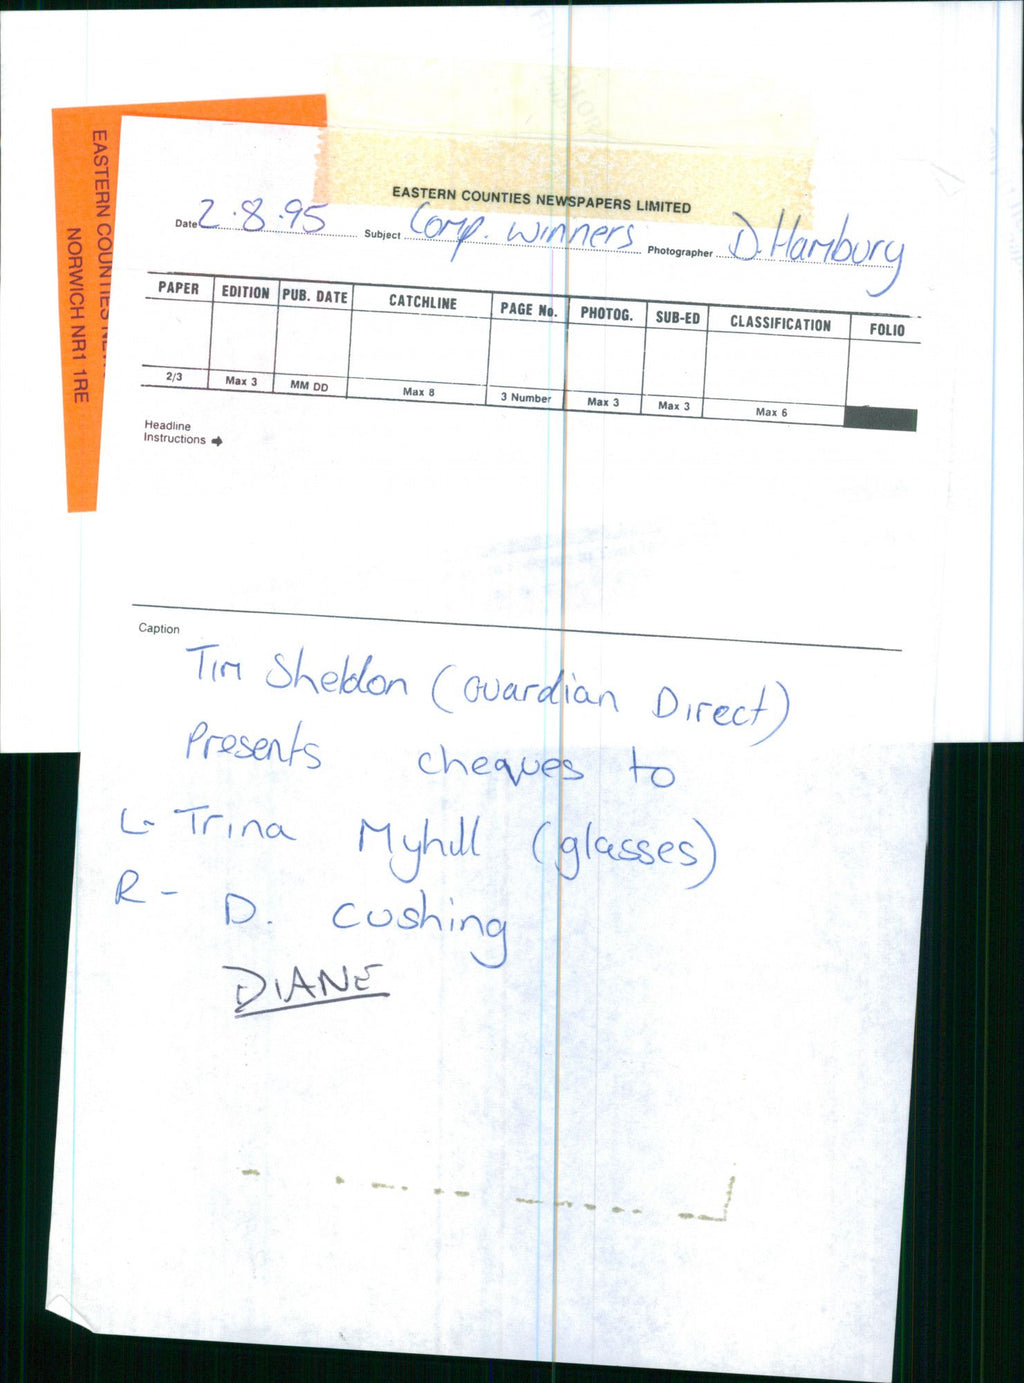 EASTERN COUNTIES NEW
NORWICH NR1 1RE
EASTERN COUNTIES NEWSPAPERS LIMITED
Date 2.8.95 Subject Comp. winners Photographer D. Hambury
PAPER EDITION PUB. DATE CATCHLINE PAGE No. PHOTOG. SUB-ED CLASSIFICATION FOLIO
2/3 Max 3 MM DD Max 8 3 Number Max 3 Max 3 Max 6
Headline
Instructions
Caption
Tim Sheldon (Guardian Direct)
Presents cheques to
L- Trina Myhill (glasses)
R - D. Cushing
DIANE